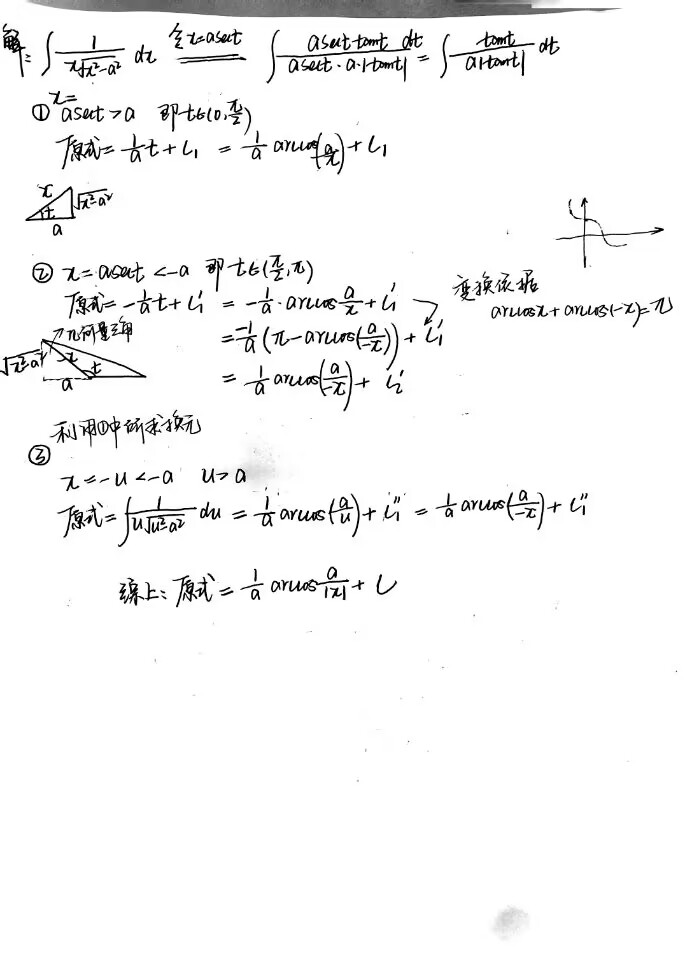 解: ∫ 1/(x√(x²-a²)) dx 令x=asect ∫ asect·tant dt/(asect·a·|tant|) = ∫ tant/(a|tant|) dt
① x=asect>a 即t∈(0,π/2)
原式=1/a t+C₁ = 1/a arccos(a/x)+C₁
x √(x²-a²)
t
a
② x=asect<-a 即t∈(π/2,π)
原式=-1/a t+C₁' = -1/a·arccos a/x+C₁'
变换依据
arccosx+arccos(-x)=π
=-1/a(π-arccos(a/-x))+C₁'
= 1/a arccos(a/-x)+C₂'
√(x²-a²) -x t
a
利用①中所求换元
③
x=-u<-a u>a
原式=∫ 1/(u√(u²-a²)) du = 1/a arccos(a/u)+C₁'' = 1/a arccos(a/-x)+C₁''
综上: 原式=1/a arccos a/|x|+C